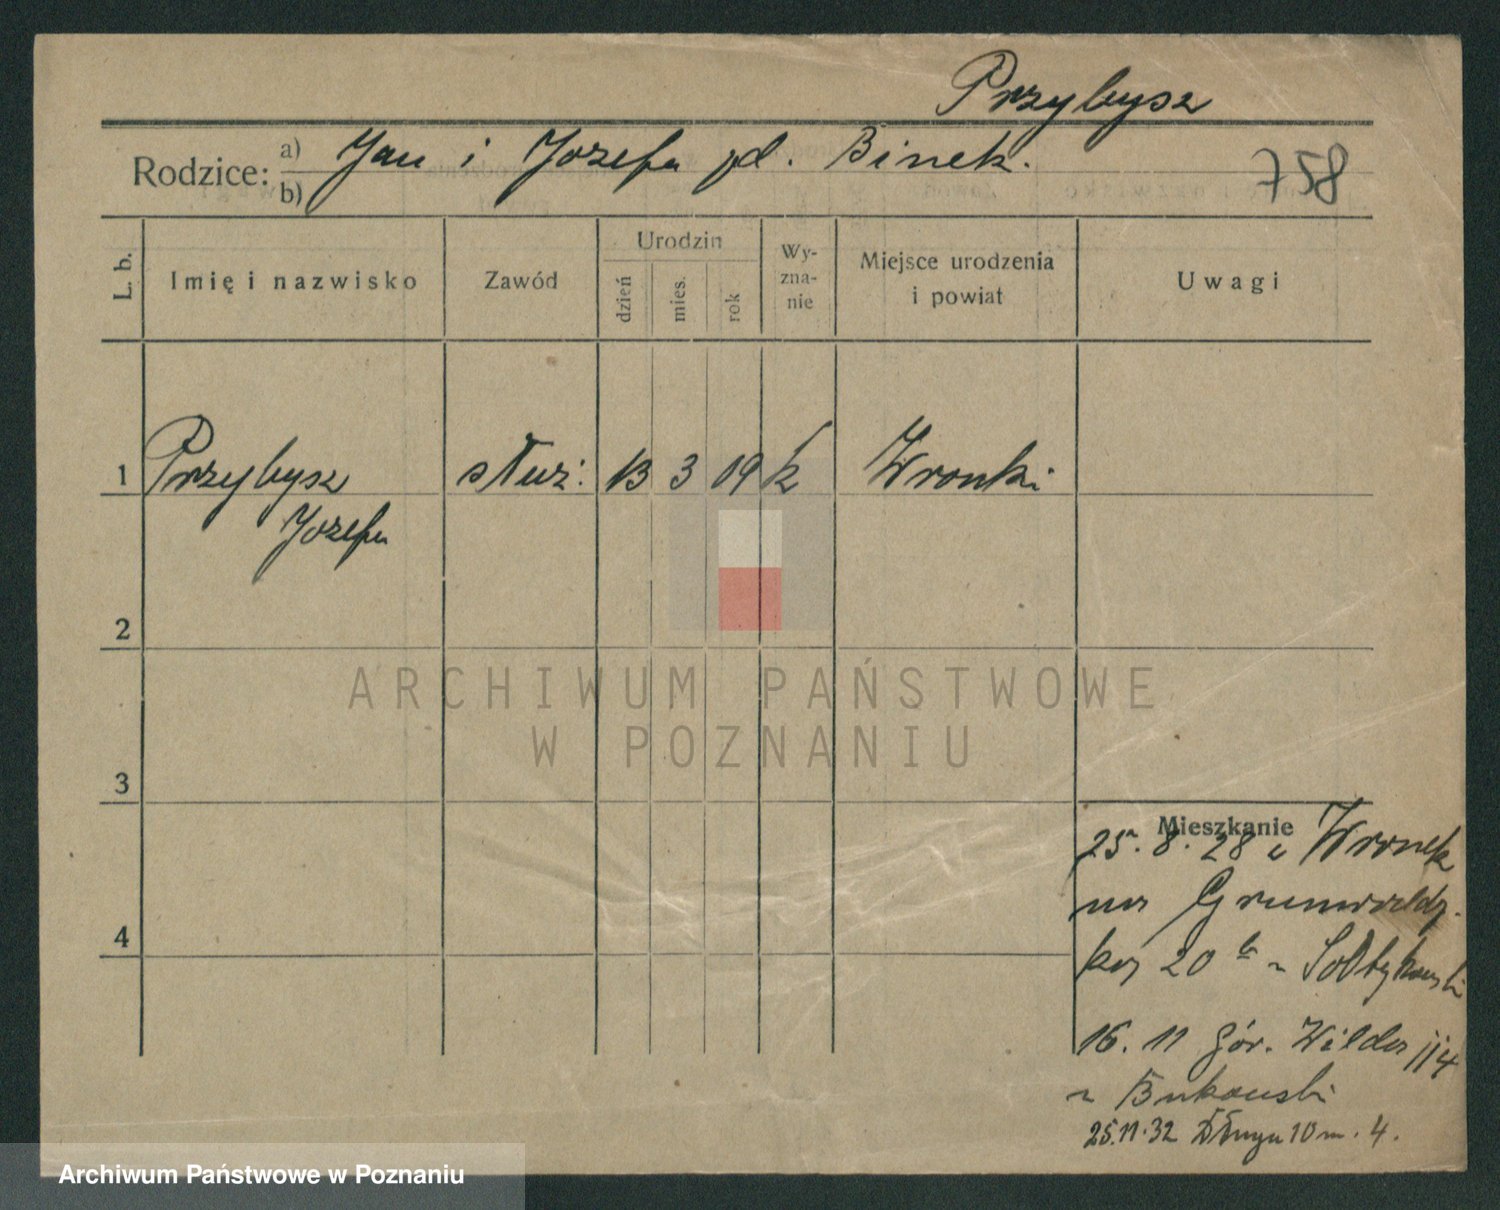 Przybysz
Rodzice: a) Jan i Józefa zd. Binek.
b)
758
L. b.
Imię i nazwisko
Zawód
Urodzin
dzień
mies.
rok
Wy-
zna-
nie
Miejsce urodzenia
i powiat
Uwagi
1 Przybysz służ. 13 3 09 k Wronki
Józefa
2
ARCHIWUM PAŃSTWOWE
W POZNANIU
3
Mieszkanie
25. 8. 28 z Wronek
na Grunwaldz.
ką 20 a Sołtykowski
16. 11 Gór. Wilda 114
Bukowski
25.11.32 Długa 10 m. 4.
4
Archiwum Państwowe w Poznaniu